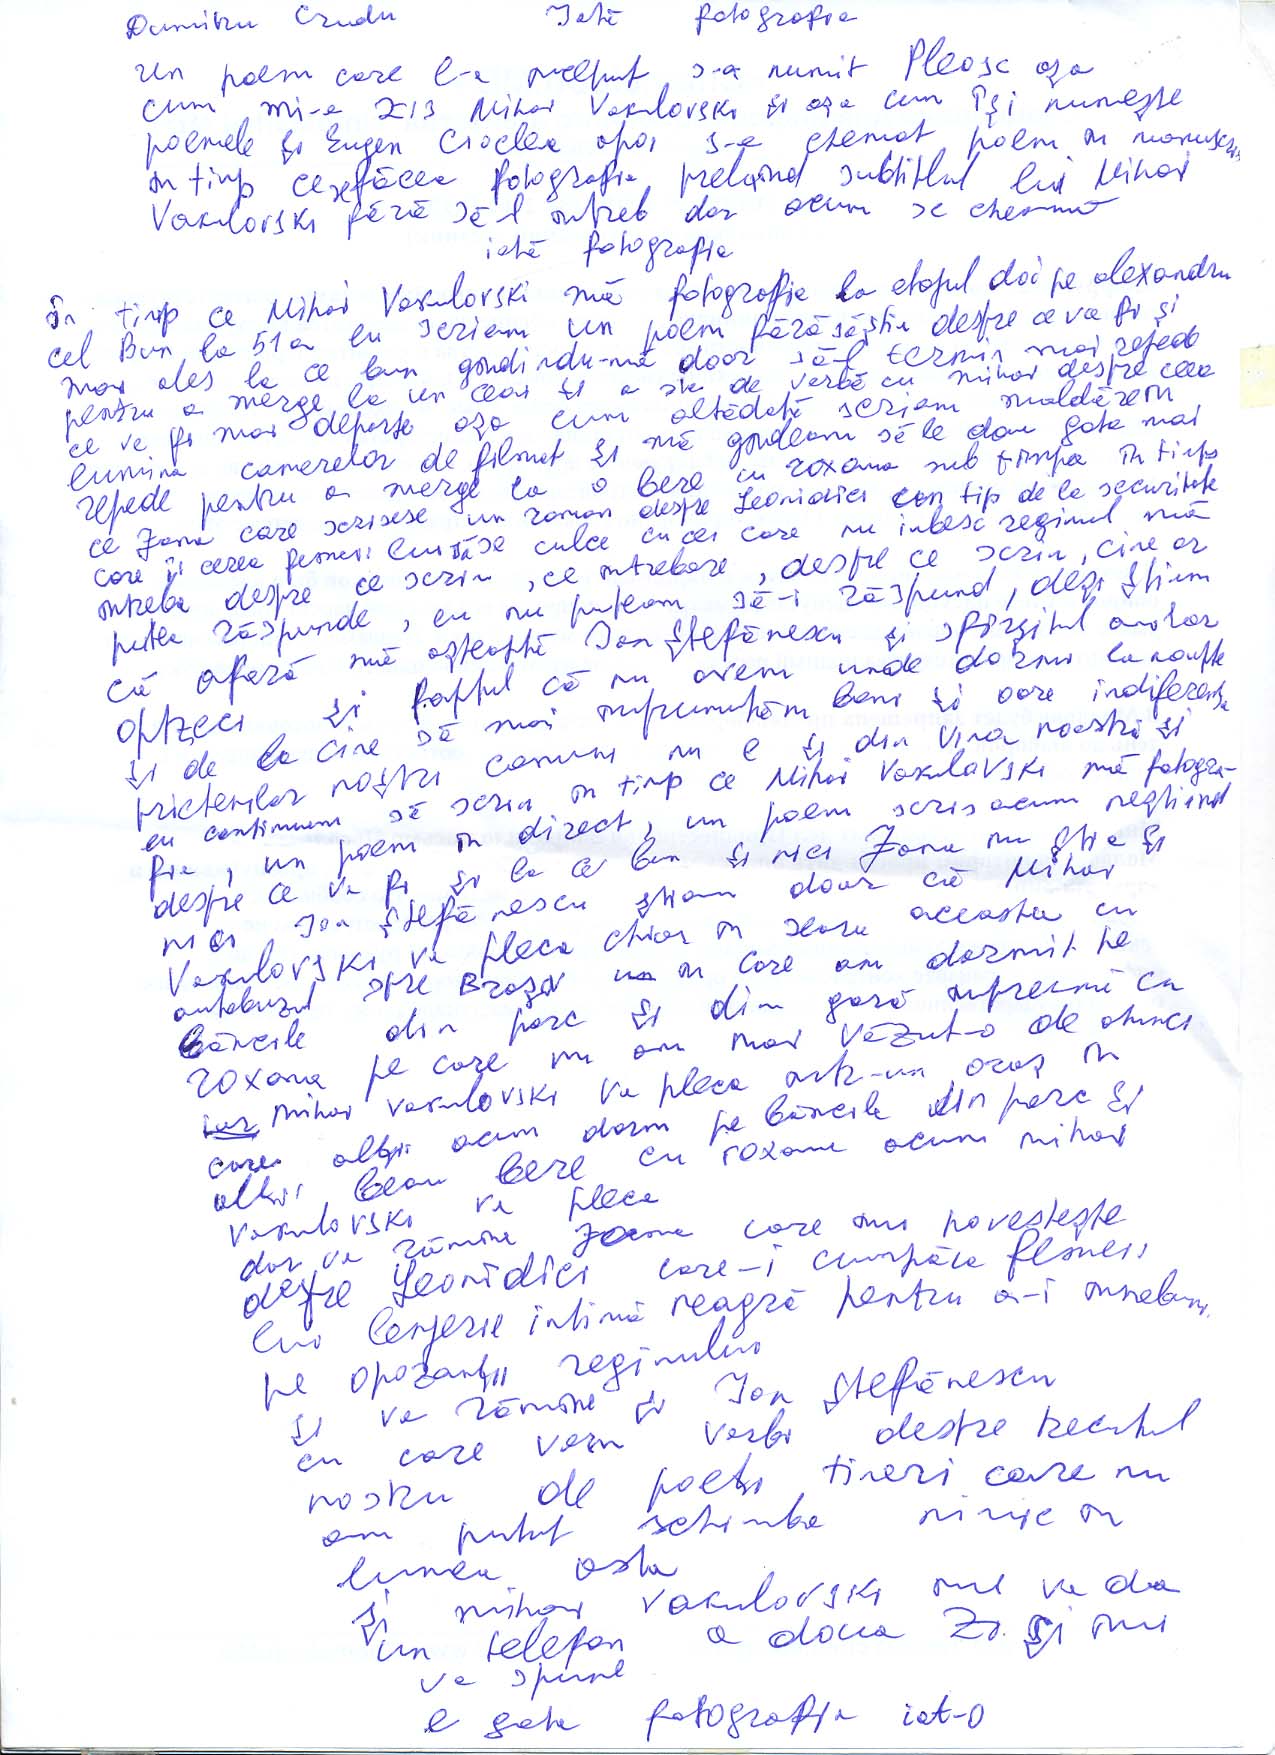 Dumitru Crudu Iată fotografia
un poem care l-a început s-a numit Pleosc așa
cum mi-a zis Mihai Vakulovski și așa cum își numește
poemele și Eugen Cioclea apoi s-a chemat poem în manuscris
în timp ce se făcea fotografia preluînd subtitlul lui Mihai
Vakulovski fără să-l întreb dar acum se cheamă
iată fotografia
în timp ce Mihai Vakulovski mă fotografia la etajul doi pe alexandru
cel Bun la 51a eu scriam un poem fără să știu despre ce va fi și
mai ales la ce bun gîndindu-mă doar să-l termin mai repede
pentru a merge la un ceai și a sta de vorbă cu mihai despre ceea
ce va fi mai departe așa cum altădată scriam maldăre în
lumina camerelor de filmat și mă gîndeam să le dau gata mai
repede pentru a merge la o bere cu roxana sub tîmpa în timp
ce Jana care scrisese un roman despre Leonidici un tip de la securitate
care îi cerea femeii lui să se culce cu cei care nu iubesc regimul mă
întreba despre ce scriu, ce întrebare, despre ce scriu, cine ar
putea răspunde, eu nu puteam să-i răspund, deși știam
că afară mă așteaptă Ion Ștefănescu și sfîrșitul anilor
optzeci și faptul că nu avem unde dormi la noapte
și de la cine să mai împrumutăm bani și oare indiferența
prietenilor noștri comuni nu e și din vina noastră și
eu continuam să scriu în timp ce Mihai Vakulovski mă fotogra-
fia, un poem în direct, un poem scris acum neștiind
despre ce va fi și la ce bun și nici Jana nu știe și
nici Ion Ștefănescu știam doar că Mihai
Vakulovski va pleca chiar în seara aceasta cu
autobuzul spre Brașov în care am dormit pe
băncile din parc și din gară împreună cu
roxana pe care nu am mai văzut-o de atunci
iar mihai vakulovski va pleca într-un oraș în
care alții acum dorm pe băncile din parc și
alții beau bere cu roxane acum mihai
vakulovski va pleca
dar va rămîne Jana care îmi povestește
despre Leonidici care-i cumpăra femeii
lui lenjerie intimă neagră pentru a-i îmnebuni
pe opozanții regimului
și va rămîne și Ion Ștefănescu
cu care vom vorbi despre trecutul
nostru de poeți tineri care nu
am putut schimba nimic în
lumea asta
și mihai vakulovski îmi va da
un telefon a doua zi și îmi
va spune
e gata fotografia iat-o